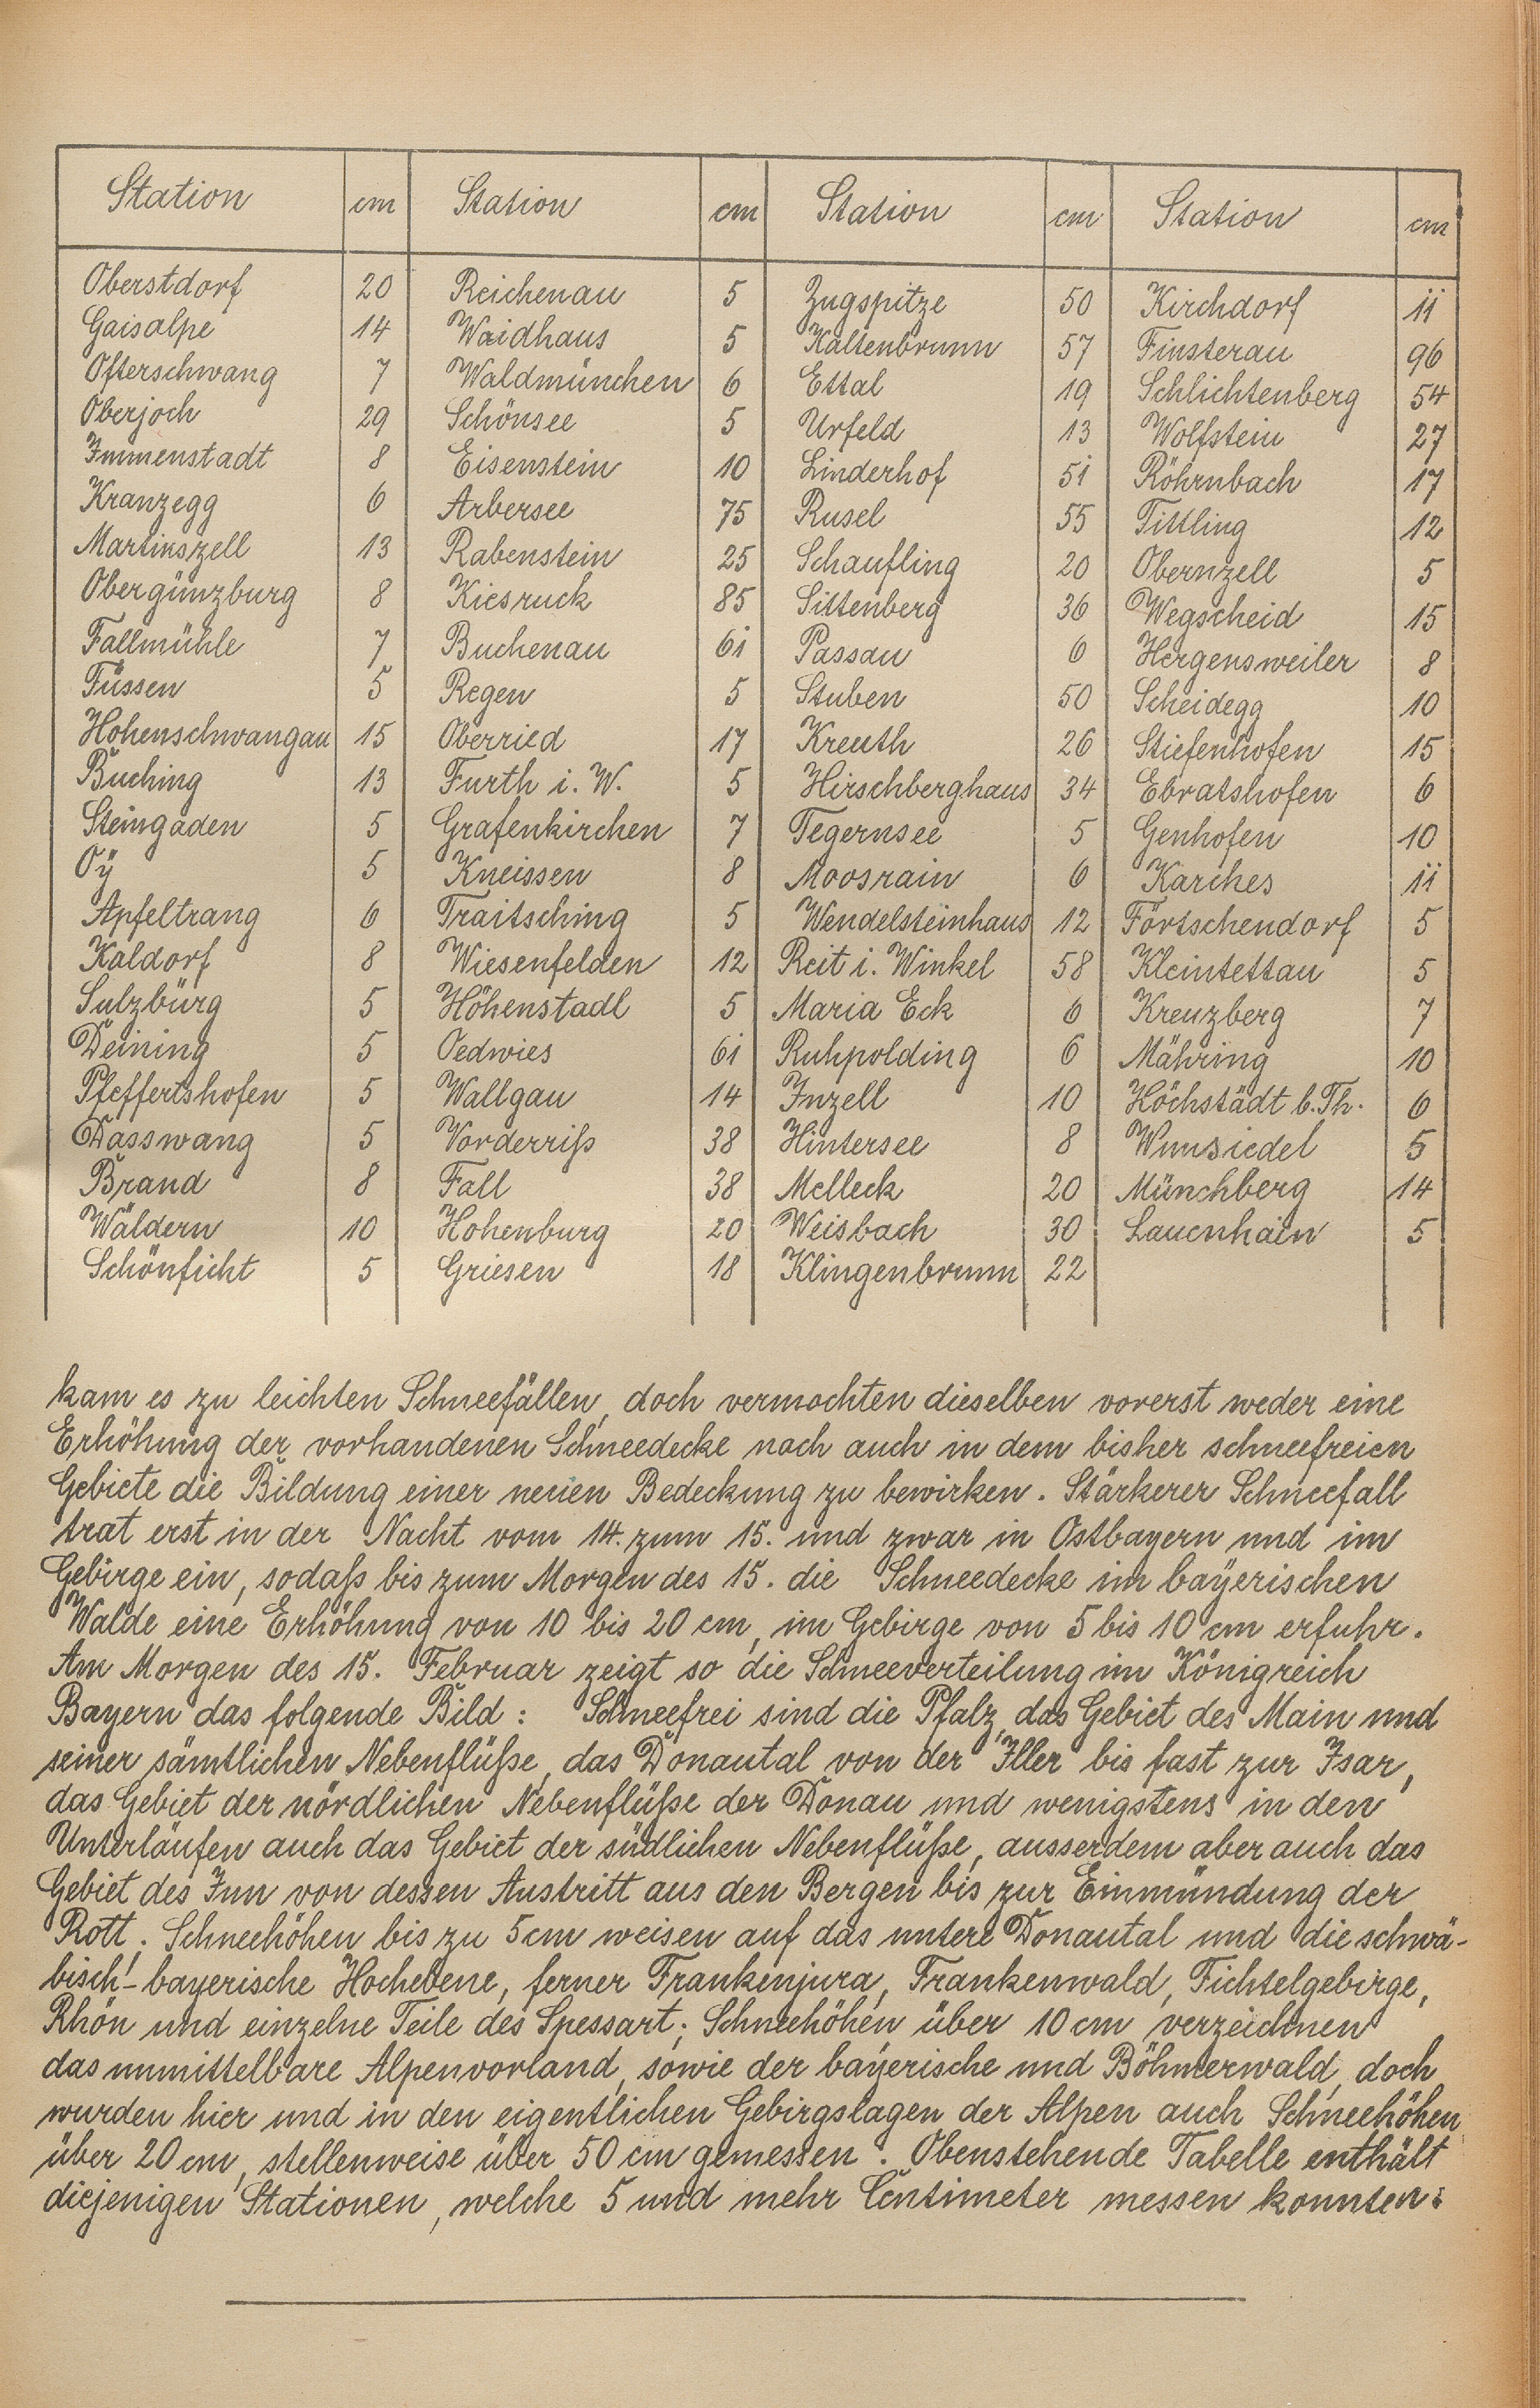 Station cm Station cm Station cm Station cm
Oberstdorf 20 Reichenau 5 Zugspitze 50 Kirchdorf 11
Gaisalpe 14 Waidhaus 5 Kaltenbrunn 57 Finsterau 96
Ofterschwang 7 Waldmünchen 6 Ettal 19 Schlichtenberg 54
Oberjoch 29 Schönsee 5 Urfeld 13 Wolfstein 27
Immenstadt 8 Eisenstein 10 Linderhof 51 Röhrnbach 17
Kranzegg 6 Arbersee 75 Rusel 55 Tittling 12
Martinszell 13 Rabenstein 25 Schaufling 20 Obernzell 5
Obergünzburg 8 Kiesruck 85 Sittenberg 36 Wegscheid 15
Fallmühle 7 Buchenau 61 Passau 6 Hergensweiler 8
Füssen 5 Regen 5 Stuben 50 Scheidegg 10
Hohenschwangau 15 Oberried 17 Kreuth 26 Stiefenhofen 15
Buching 13 Furth i. W. 5 Hirschberghaus 34 Ebratshofen 6
Steingaden 5 Grafenkirchen 7 Tegernsee 5 Genhofen 10
Oÿ 5 Kneissen 8 Moosrain 6 Karches 11
Apfeltrang 6 Traitsching 5 Wendelsteinhaus 12 Förtschendorf 5
Kaldorf 8 Wiesenfelden 12 Reit i. Winkel 58 Kleintettau 5
Sulzbürg 5 Höhenstadl 5 Maria Eck 6 Kreuzberg 7
Deining 5 Oedwies 61 Ruhpolding 6 Mähring 10
Pfeffertshofen 5 Wallgau 14 Inzell 10 Höchstädt b. Th. 6
Dasswang 5 Vorderriß 38 Hintersee 8 Wunsiedel 5
Brand 8 Fall 38 Melleck 20 Münchberg 14
Wäldern 10 Hohenburg 20 Weisbach 30 Lauenhain 5
Schönficht 5 Griesen 18 Klingenbrunn 22
kam es zu leichten Schneefällen, doch vermochten dieselben vorerst weder eine
Erhöhung der vorhandenen Schneedecke noch auch in dem bisher schneefreien
Gebiete die Bildung einer neuen Bedeckung zu bewirken. Stärkerer Schneefall
trat erst in der Nacht vom 14. zum 15. und zwar in Ostbayern und im
Gebirge ein, sodaß bis zum Morgen des 15. die Schneedecke im bayerischen
Walde eine Erhöhung von 10 bis 20 cm, im Gebirge von 5 bis 10 cm erfuhr.
Am Morgen des 15. Februar zeigt so die Schneeverteilung im Königreich
Bayern das folgende Bild: Schneefrei sind die Pfalz, das Gebiet des Main und
seiner sämtlichen Nebenflüße, das Donautal von der Iller bis fast zur Isar,
das Gebiet der nördlichen Nebenflüße der Donau und wenigstens in den
Unterläufen auch das Gebiet der südlichen Nebenflüße, ausserdem aber auch das
Gebiet des Inn von dessen Austritt aus den Bergen bis zur Einmündung der
Rott. Schneehöhen bis zu 5cm weisen auf das untere Donautal und die schwä-
bisch-bayerische Hochebene, ferner Frankenjura, Frankenwald, Fichtelgebirge,
Rhön und einzelne Teile des Spessart; Schneehöhen über 10 cm verzeichnen
das unmittelbare Alpenvorland, sowie der bayerische und Böhmerwald, doch
wurden hier und in den eigentlichen Gebirgslagen der Alpen auch Schneehöhen
über 20 cm, stellenweise über 50 cm gemessen. Obenstehende Tabelle enthält
diejenigen Stationen, welche 5 und mehr Centimeter messen konnten: